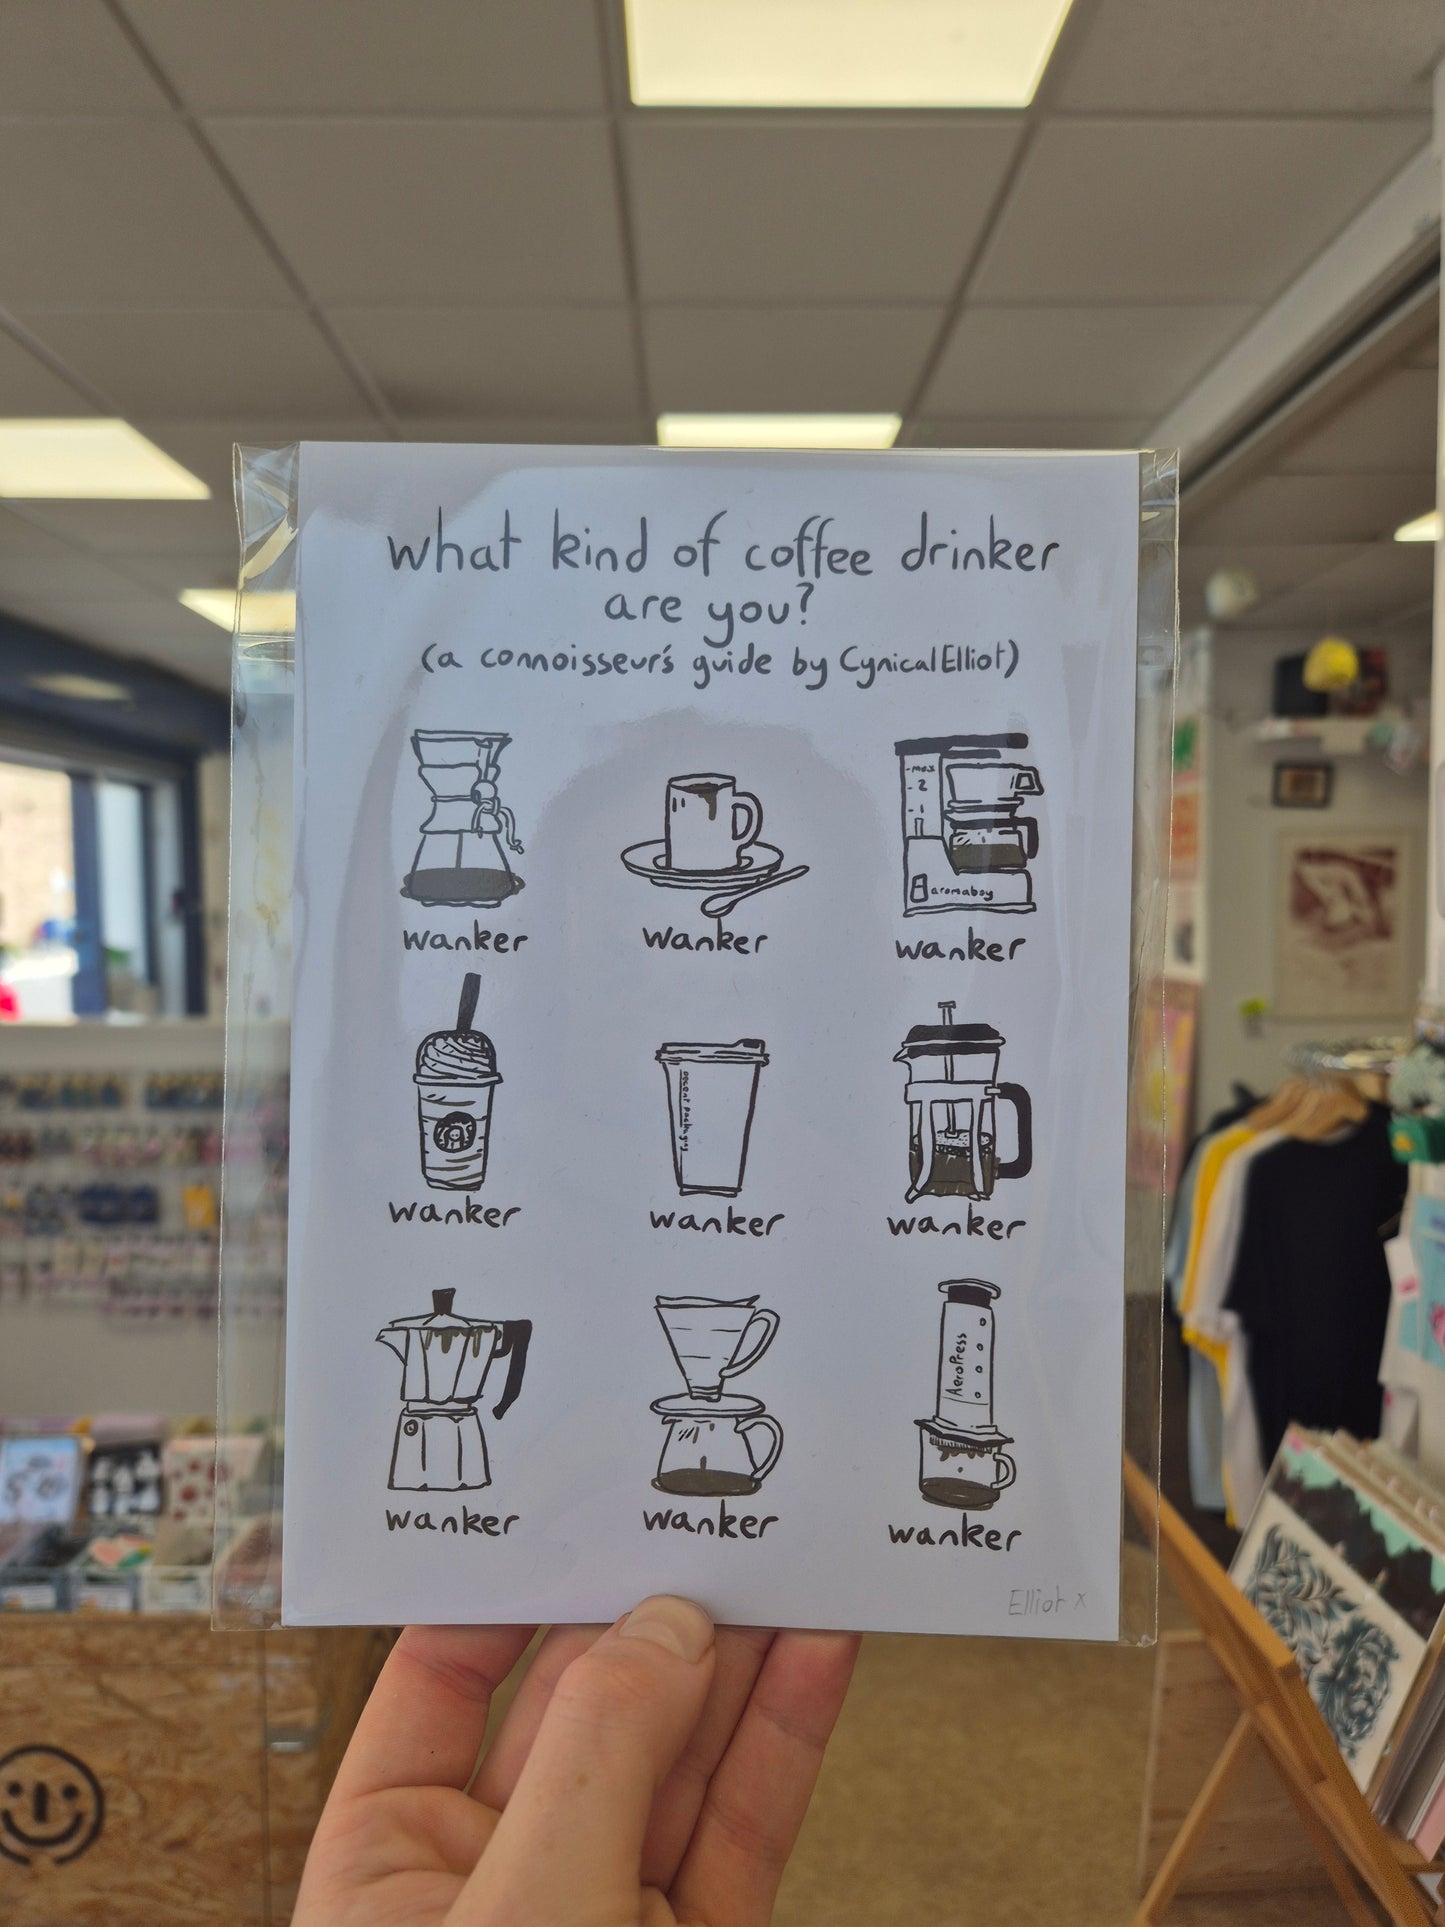 what kind of coffee drinker
are you?
(a connoisseur's guide by CynicalElliot)
-max
-2
-1
aromaboy
wanker
wanker
wanker
decent packaging
wanker
wanker
wanker
AeroPress
wanker
wanker
wanker
Elliot x